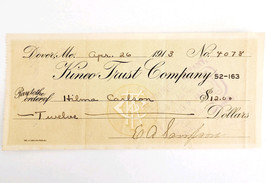 Dover, Me. Apr. 26 1913 No. 4078
Kineo Trust Company 52-163
Pay to the order of Hilma Carlson $12.00
Twelve Dollars